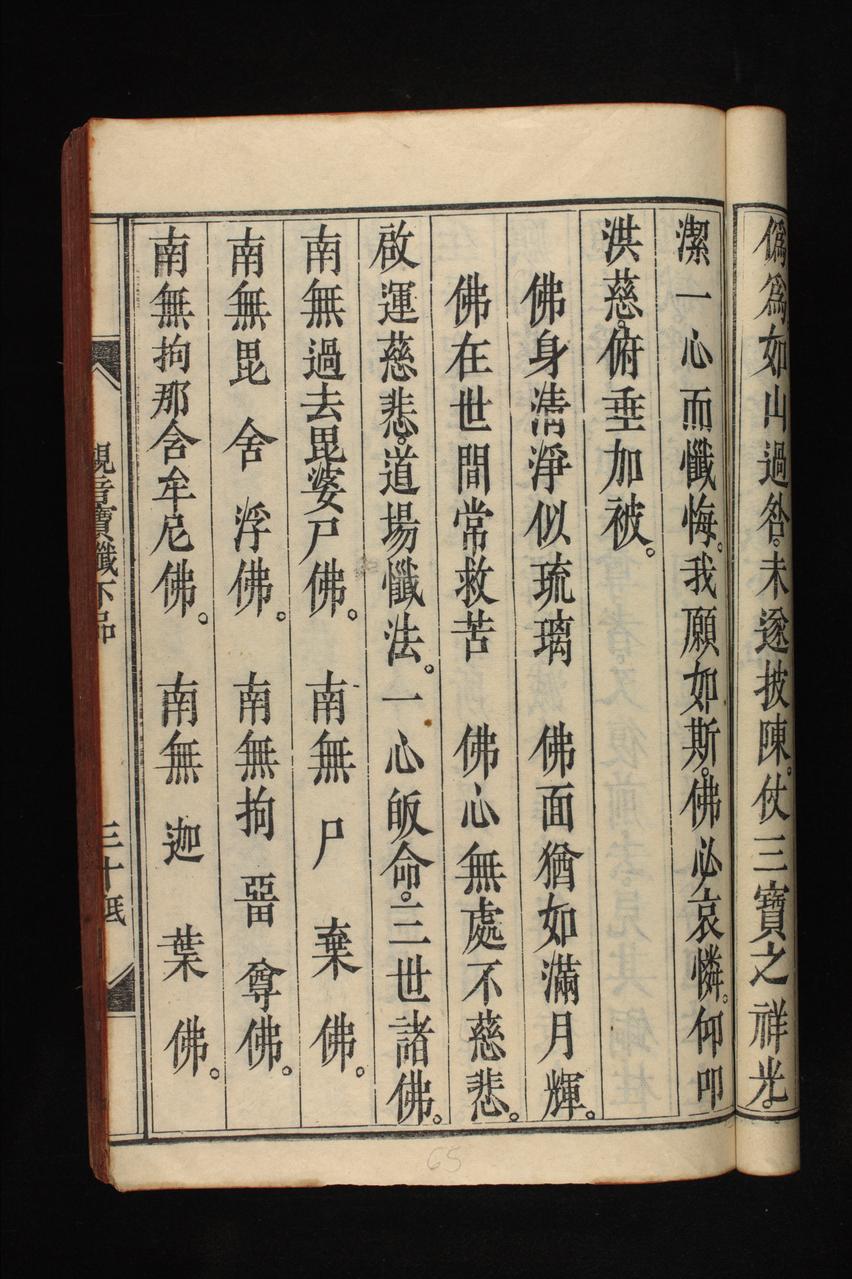 僞為如山過咎。未遂披陳。仗三寶之祥光。
潔一心而懺悔。我願如斯。佛必哀憐。仰叩
洪慈。俯垂加被。
佛身清淨似琉璃　佛面猶如滿月輝。
佛在世間常救苦　佛心無處不慈悲。
啟運慈悲。道場懺法。一心皈命。三世諸佛。
南無過去毘婆尸佛。　南無尸棄佛。
南無毘舍浮佛。　南無拘畱尊佛。
南無拘那含牟尼佛。　南無迦葉佛。
觀音寶懺下品　三十
65